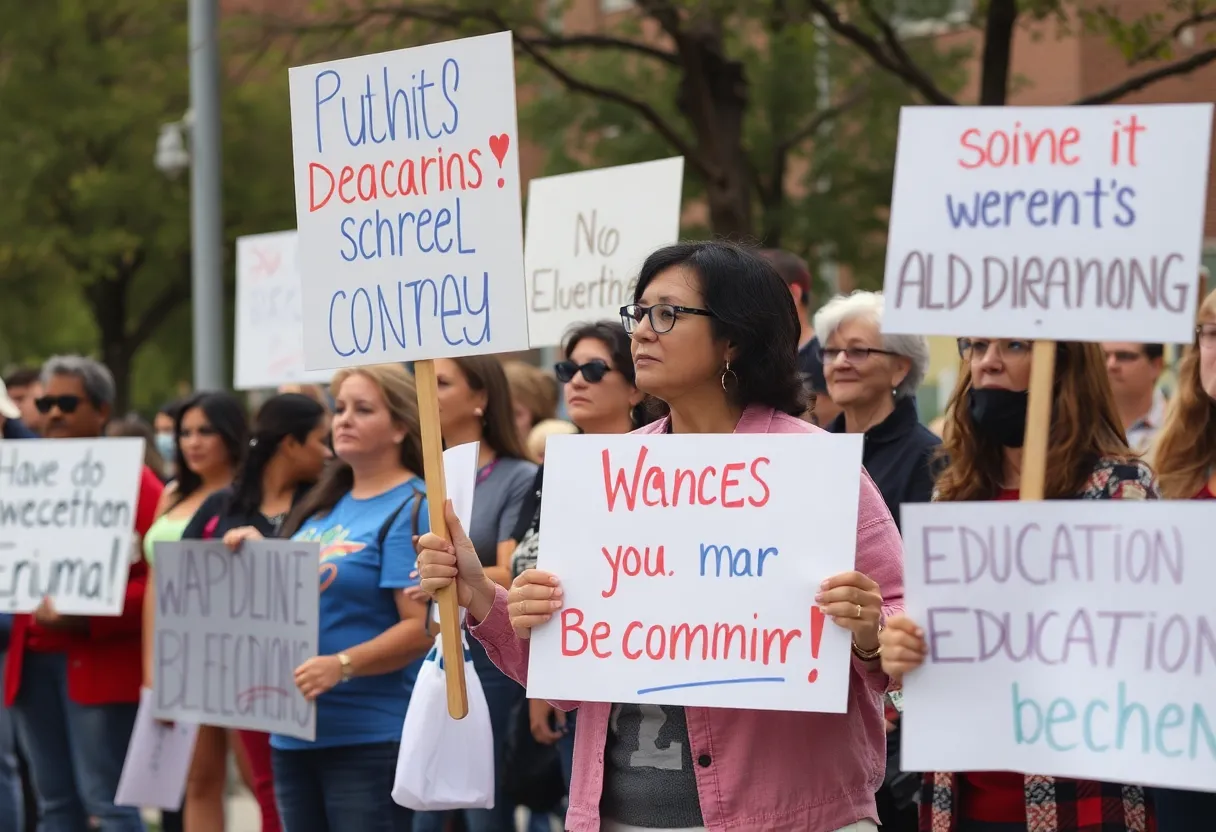 Puthits
Deacarins!
schreel
contney
No
Eluerthe
soine it
werent's
ALD DIRANONG
Have do
wecethon
Eniuma!
WAPDLINE
BLEECDIONS
Wances
you. mar
Be comminr!
EDUCATION
EDUCATION
bechen